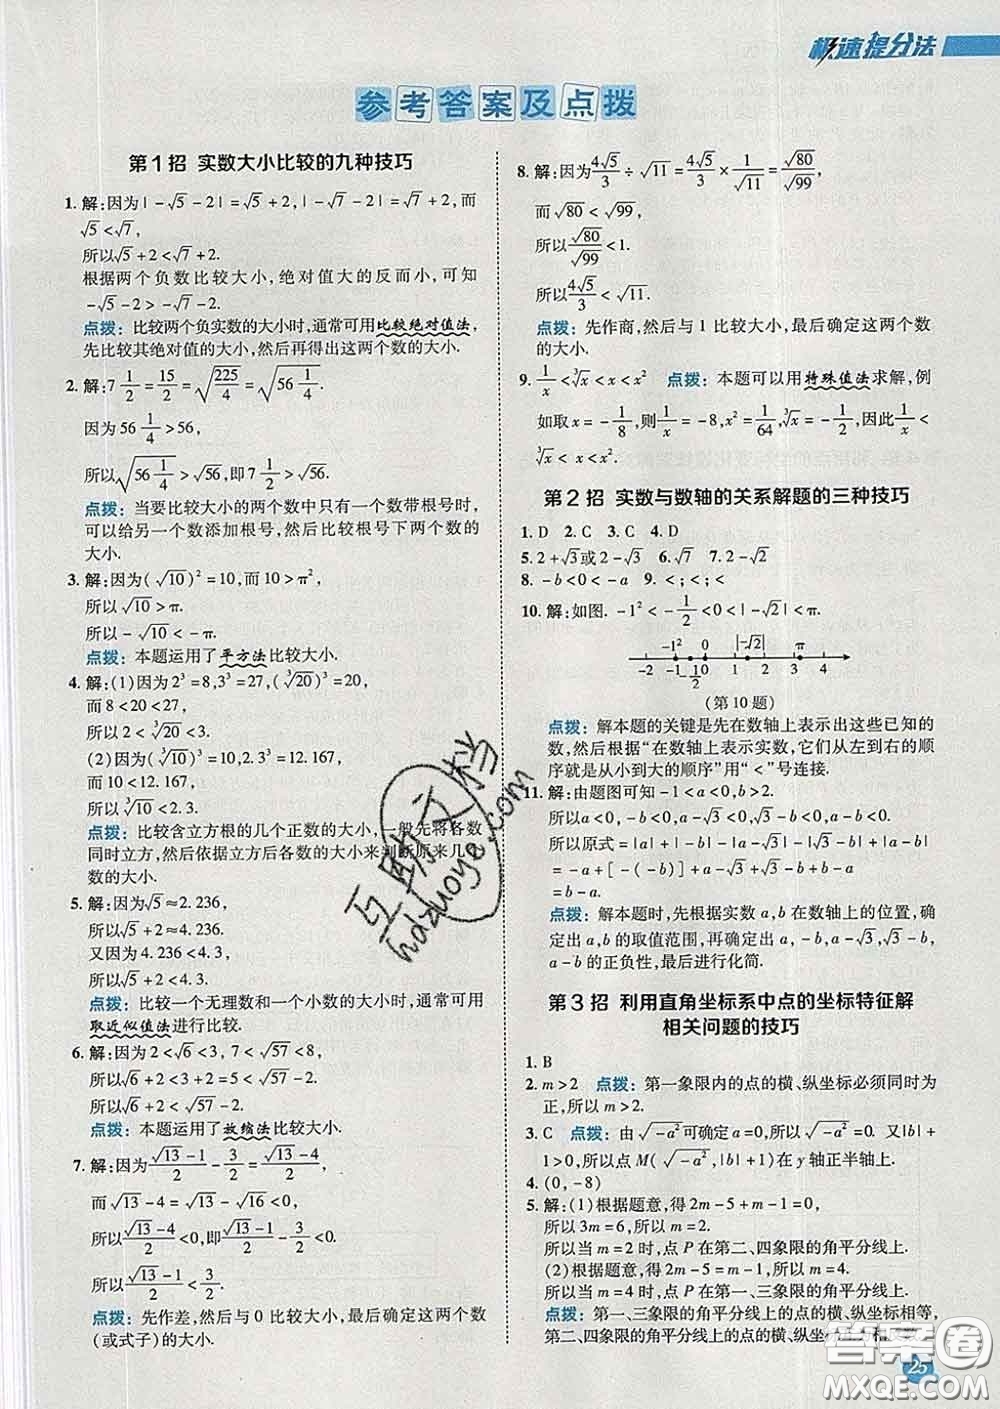 极速提分法
参考答案及点拨
第1招 实数大小比较的九种技巧
1. 解:因为|-√5-2|=√5+2,|-√7-2|=√7+2,而
√5<√7,
所以√5+2<√7+2.
根据两个负数比较大小,绝对值大的反而小,可知
-√5-2>-√7-2.
点拨:比较两个负实数的大小时,通常可用比较绝对值法,
先比较其绝对值的大小,然后再得出这两个数的大小.
2. 解:7 1/2=15/2=√(225/4)=√(56 1/4),
因为56 1/4>56,
所以√(56 1/4)>√56,即7 1/2>√56.
点拨:当要比较大小的两个数中只有一个数带根号时,
可以给另一个数添加根号,然后比较根号下两个数的
大小.
3. 解:因为(√10)²=10,而10>π²,
所以√10>π.
所以-√10<-π.
点拨:本题运用了平方法比较大小.
4. 解:(1)因为2³=8,3³=27,(³√20)³=20,
而8<20<27,
所以2<³√20<3.
(2)因为(³√10)³=10,2.3³=12.167,
而10<12.167,
所以³√10<2.3.
点拨:比较含立方根的几个正数的大小,一般先将各数
同时立方,然后依据立方后各数的大小来判断原来几
数的大小.
5. 解:因为√5≈2.236,
所以√5+2≈4.236.
又因为4.236<4.3,
所以√5+2<4.3.
点拨:比较一个无理数和一个小数的大小时,通常可用
取近似值法进行比较.
6. 解:因为2<√6<3,7<√57<8,
所以√6+2<3+2=5,√57-2>7-2=5,
所以√6+2<√57-2.
点拨:本题运用了放缩法比较大小.
7. 解:因为(√13-1)/2-3/2=(√13-4)/2,
而√13-4=√13-√16<0,
所以(√13-4)/2<0,即(√13-1)/2-3/2<0.
所以(√13-1)/2<3/2.
点拨:先作差,然后与0比较大小,最后确定这两个数
(或式子)的大小.
8. 解:因为4√5/3÷√11=4√5/3×1/√11=√80/√99,
而√80<√99,
所以√80/√99<1.
所以4√5/3<√11.
点拨:先作商,然后与1比较大小,最后确定这两个数
的大小.
9. 1/x<³√x<x<x² 点拨:本题可以用特殊值法求解,例
如取x=-1/8,则1/x=-8,x²=1/64,³√x=-1/2,因此1/x<
³√x<x<x².
第2招 实数与数轴的关系解题的三种技巧
1. D 2. C 3. C 4. D
5. 2+√3或2-√3 6. √7 7. 2-√2
8. -b<0<-a 9. <;<;<
10. 解:如图. -1²<-1/2<0<|-√2|<π.
-1² 0 |-√2| π
-2 -1 -1/2 0 1 2 3 4
(第10题)
点拨:解本题的关键是先在数轴上表示出这些已知的
数,然后根据“在数轴上表示实数,它们从左到右的顺
序就是从小到大的顺序”用“<”号连接.
11. 解:由题图可知-1<a<0,b>2.
所以a<0,-b<0,a-√3<0,√3-b<0.
所以原式=|a|+|-b|-|a-√3|-|√3-b|
=-a+[-(-b)]+a-√3+√3-b+b-a
=b-a.
点拨:解本题时,先根据实数a,b在数轴上的位置,确
定出a,b的取值范围,再确定出a,-b,a-√3,√3-b
的正负性,最后进行化简.
第3招 利用直角坐标系中点的坐标特征解
相关问题的技巧
1. B
2. m>2 点拨:第一象限内的点的横、纵坐标必须同时为
正,所以m>2.
3. C 点拨:由√(-a²)可确定a=0,所以√(-a²)=0. 又|b|+
1>0,所以点M(√(-a²),|b|+1)在y轴正半轴上.
4. (0,-8)
5. 解:(1)根据题意,得2m-5+m-1=0,
所以3m=6,所以m=2.
所以当m=2时,点P在第二、四象限的角平分线上.
(2)根据题意,得2m-5=m-1,所以m=4.
所以当m=4时,点P在第一、三象限的角平分线上.
点拨:第一、三象限的角平分线上的点的横、纵坐标相等,
第二、四象限的角平分线上的点的横、纵坐标
25
互助文档
hdzuoye.com
答案圈
MXQE.COM